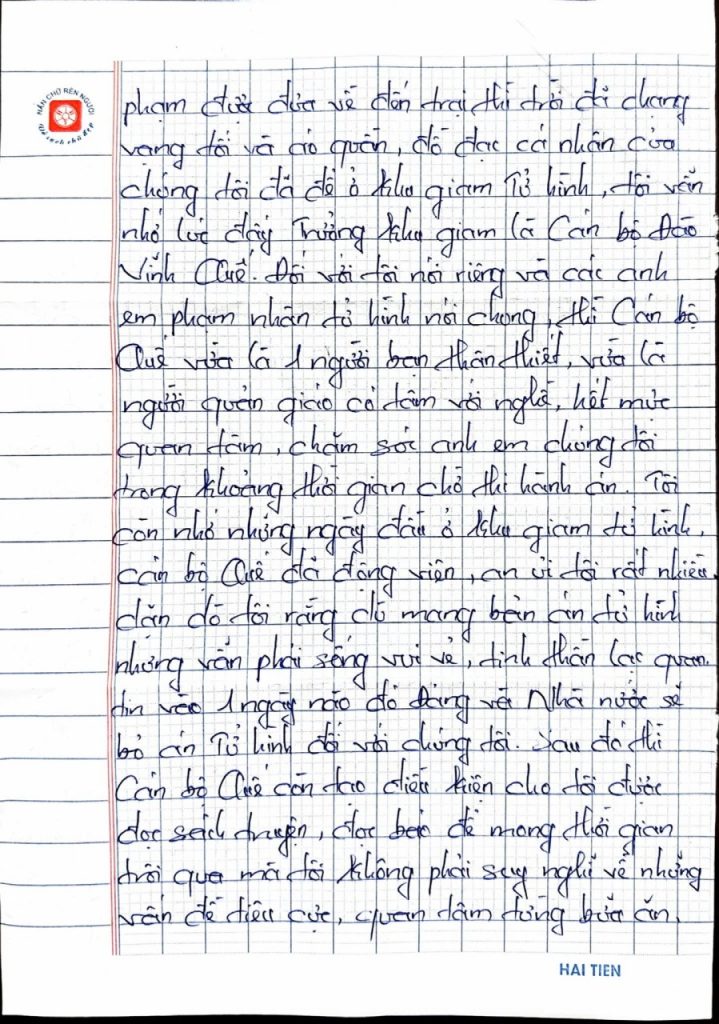 NẮN CHỮ RÈN NGƯỜI
phạm được đưa về đến trại thì trời đã chạng
vạng tối và áo quần, đồ đạc cá nhân của
chúng tôi đã để ở khu giam Tử hình, tôi vẫn
nhớ lúc đấy Trưởng khu giam là Cán bộ Đào
Vinh Quế. Đối với tôi nói riêng và các anh
em phạm nhân tử hình nói chung, thì Cán bộ
Quế vừa là 1 người bạn thân thiết, vừa là
người quản giáo có tâm với nghề, hết mực
quan tâm, chăm sóc anh em chúng tôi
trong khoảng thời gian chờ thi hành án. Tôi
còn nhớ những ngày đầu ở khu giam tử hình,
cán bộ Quế đã động viên, an ủi tôi rất nhiều.
dặn dò tôi rằng dù mang bản án tử hình
nhưng vẫn phải sống vui vẻ, tinh thần lạc quan.
tin vào 1 ngày nào đó Đảng và Nhà nước sẽ
bỏ án Tử hình đối với chúng tôi. Sau đó thì
Cán bộ Quế còn tạo điều kiện cho tôi được
đọc sách truyện, đọc báo để mong thời gian
trôi qua mà tôi không phải suy nghĩ về những
vấn đề tiêu cực, quan tâm từng bữa ăn,
HAI TIEN